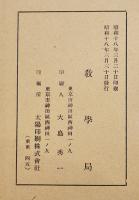 昭和十八年三月二十日印刷
昭和十八年三月三十日發行
教學局
東京市神田區西神田一ノ九
印刷人 大島秀一
東京市神田區西神田一ノ九
印刷所 太陽印刷株式會社